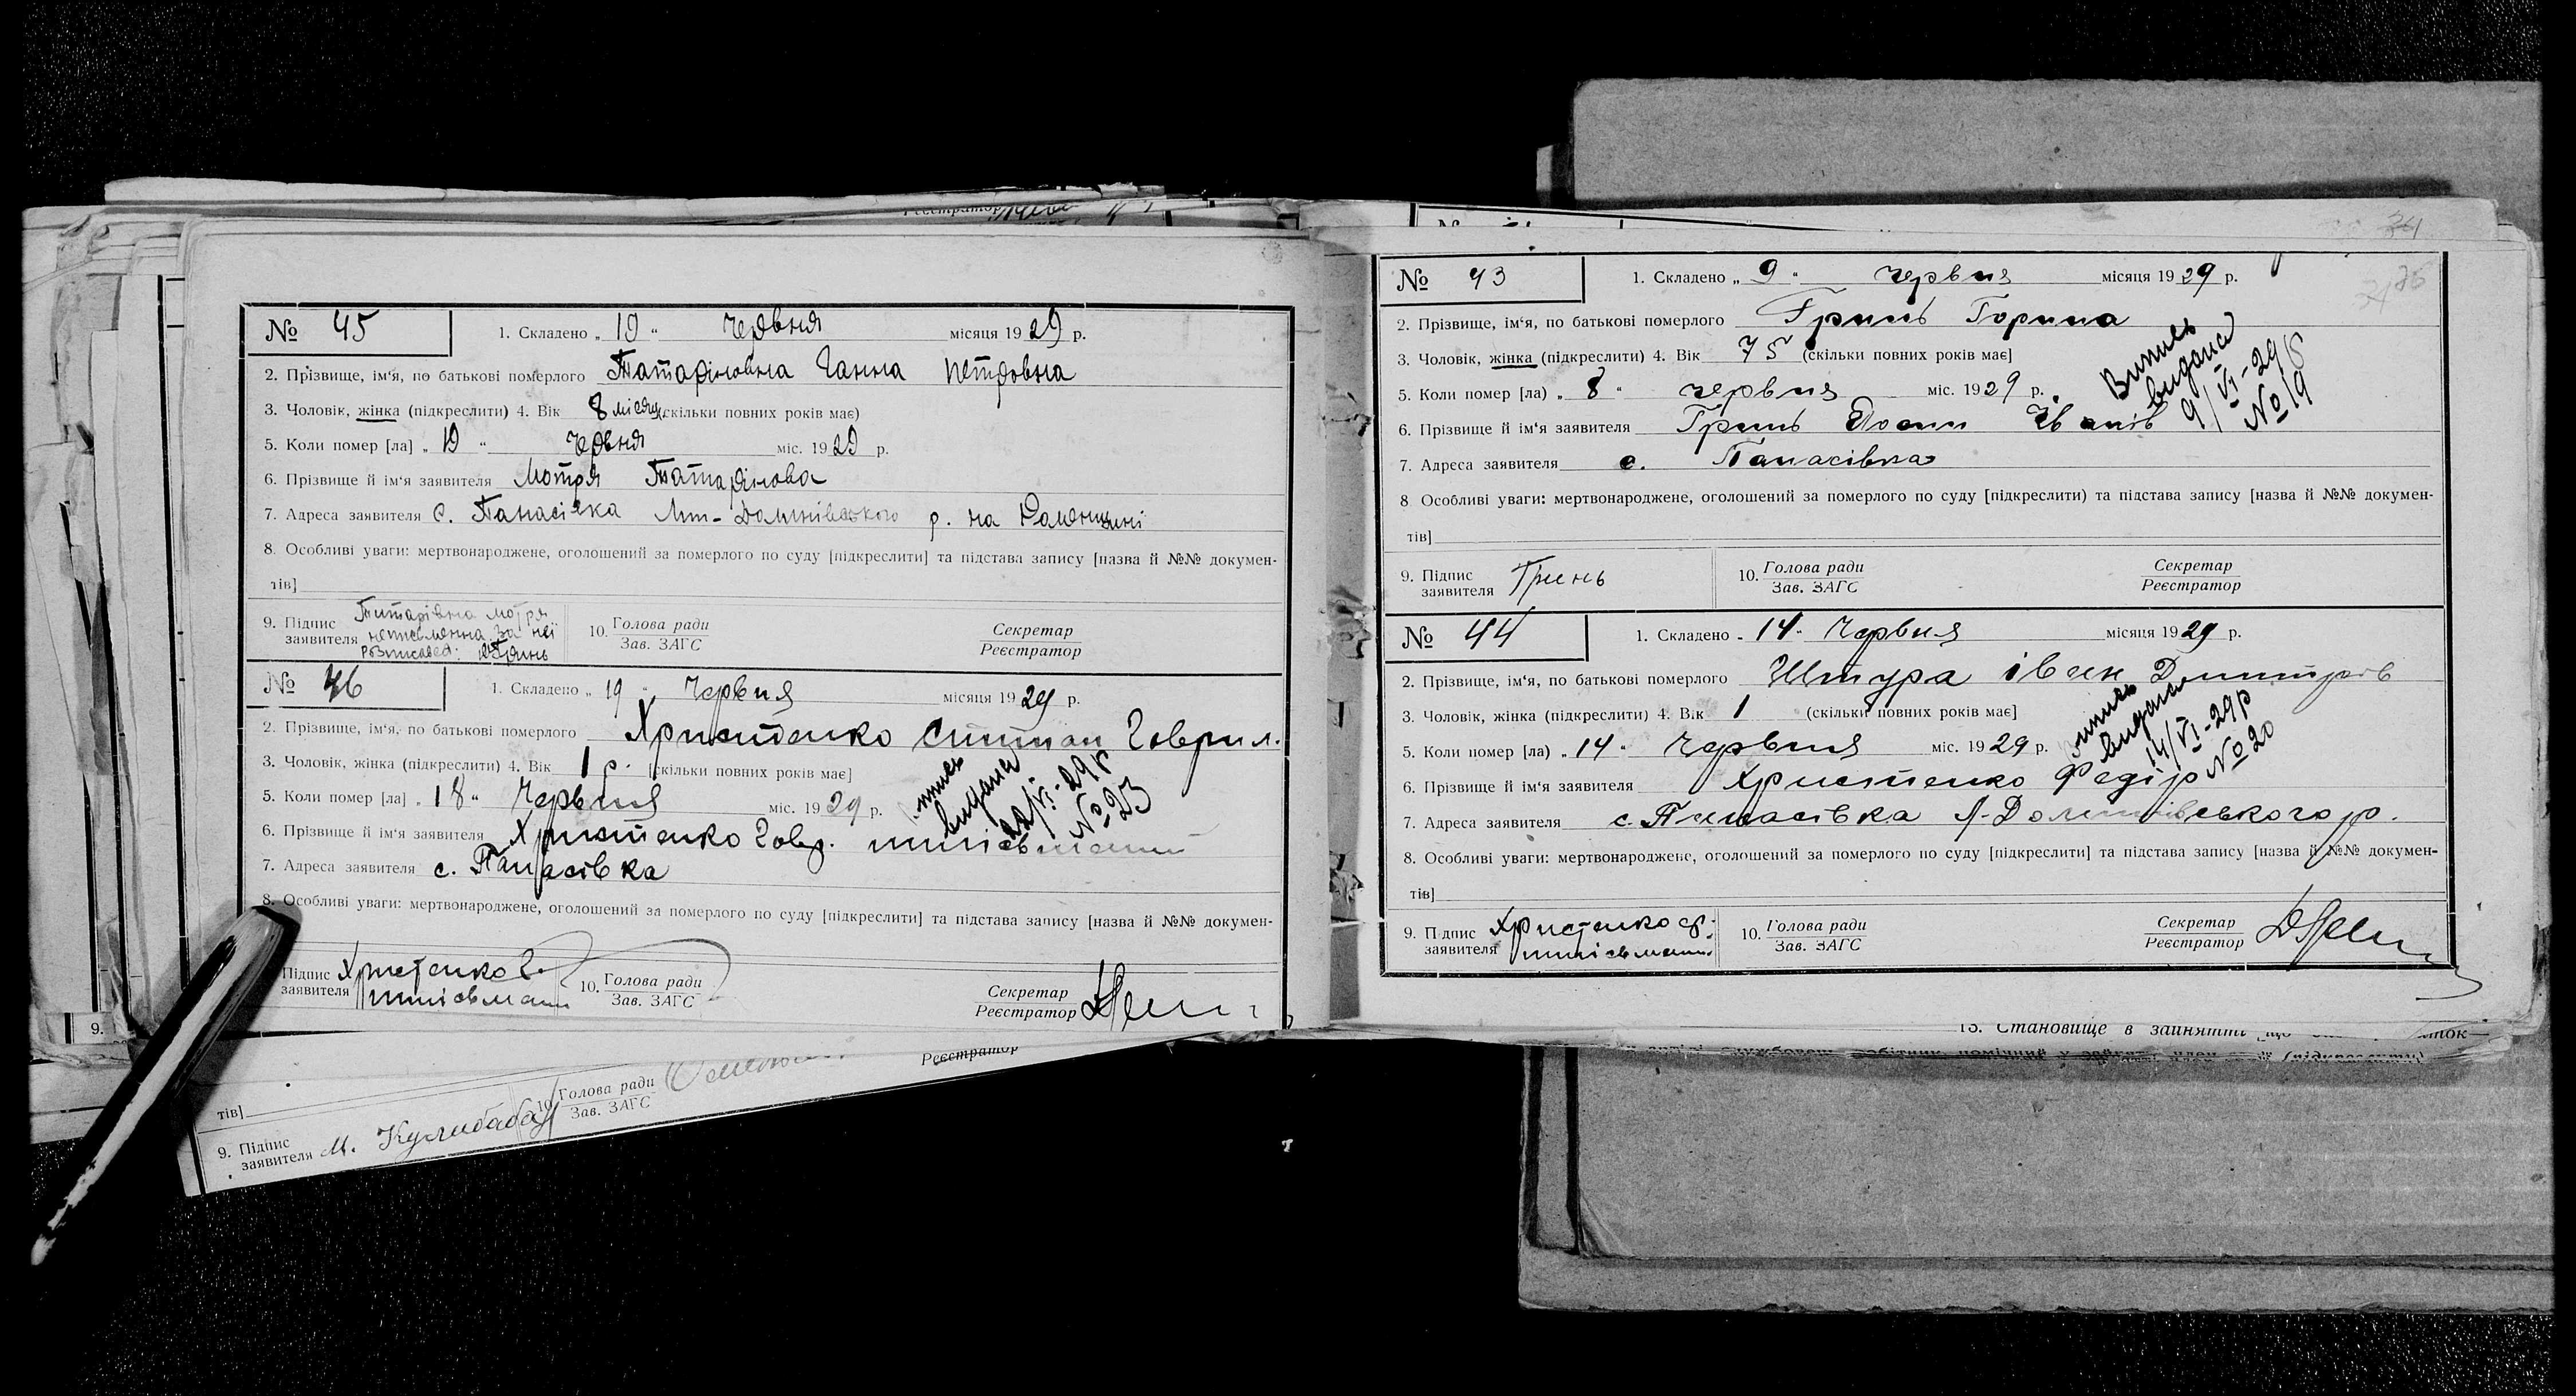 № 45 1. Складено „ 19 “ Червня місяця 1929 р.
2. Прізвище, ім‘я, по батькові померлого Татаріновна Ганна Петровна
3. Чоловік, жінка (підкреслити) 4. Вік 8 місяц. (скільки повних років має)
5. Коли помер [ла] „ 19 “ Червня міс. 1929 р.
6. Прізвище й ім‘я заявителя Мотря Татарінова
7. Адреса заявителя с. Панасівка Лип-Долинівського р. на Роменщині
8. Особливі уваги: мертвонароджене, оголошений за померлого по суду [підкреслити] та підстава запису [назва й №№ докумен-
тів]
9. Підпис заявителя Мотря неписьменна за неї розписався: Гринь 10. Голова ради Зав. ЗАГС Секретар Реєстратор
№ 46 1. Складено „ 19 “ Червня місяця 1929 р.
2. Прізвище, ім‘я, по батькові померлого Христенко Степан Говрил.
3. Чоловік, жінка (підкреслити) 4. Вік 1 р. [скільки повних років має]
5. Коли помер [ла] „ 18 “ Червня міс. 1929 р.
видана 22/VI-29 р №23
6. Прізвище й ім‘я заявителя Христенко Говр.
7. Адреса заявителя с. Панасівка
8. Особливі уваги: мертвонароджене, оголошений за померлого по суду [підкреслити] та підстава запису [назва й №№ докумен-
Підпис заявителя Христенко Г. 10. Голова ради Зав. ЗАГС Секретар Реєстратор
Реєстратор
тів]
9. Підпис заявителя М. Кулибаба 10. Голова ради Зав. ЗАГС
34
№ 43 1. Складено „ 9 “ червня місяця 1929 р.
2. Прізвище, ім‘я, по батькові померлого Гринь Горпина
3. Чоловік, жінка (підкреслити) 4. Вік 75 (скільки повних років має]
5. Коли помер [ла) „ 8 “ червня міс. 1929 р.
Випись видана 9/VI-29 р №19
6. Прізвище й ім‘я заявителя Гринь Йосип Іванів
7. Адреса заявителя с. Панасівка
8 Особливі уваги: мертвонароджене, оголошений за померлого по суду [підкреслити) та підстава запису [назва й №№ докумен-
тів]
9. Підпис заявителя Гринь 10. Голова ради Зав. ЗАГС Секретар Реєстратор
№ 44 1. Складено „ 14 “ Червня місяця 1929 р.
2. Прізвище, ім‘я, по батькові померлого Штура Іван Дмитрів
3. Чоловік, жінка (підкреслити) 4. Вік 1 (скільки повних років має]
5. Коли помер [ла) „ 14 “ Червня міс. 1929 р.
випись видана 14/VI-29 р №20
6. Прізвище й ім‘я заявителя Христенко Федір
7. Адреса заявителя с. Панасівка Л-Долинівського р.
8. Особливі уваги: мертвонароджене, оголошений за померлого по суду [підкреслити] та підстава запису [назва й №№ докумен-
тів]
9. Підпис заявителя Христенко Ф. 10. Голова ради Зав. ЗАГС Секретар Реєстратор